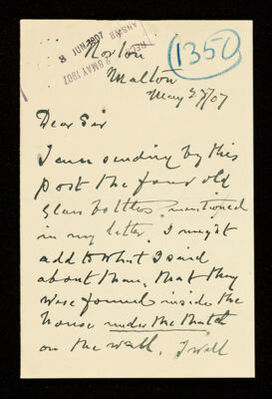 1350
8 MAY 1907
Norton
Malton
May 27/07
Dear Sir
I am sending by this
post the four old
glass bottles, mentioned
in my letter. I might
add to what I said
about them, that they
were found inside the
house under the thatch
on the wall. I will